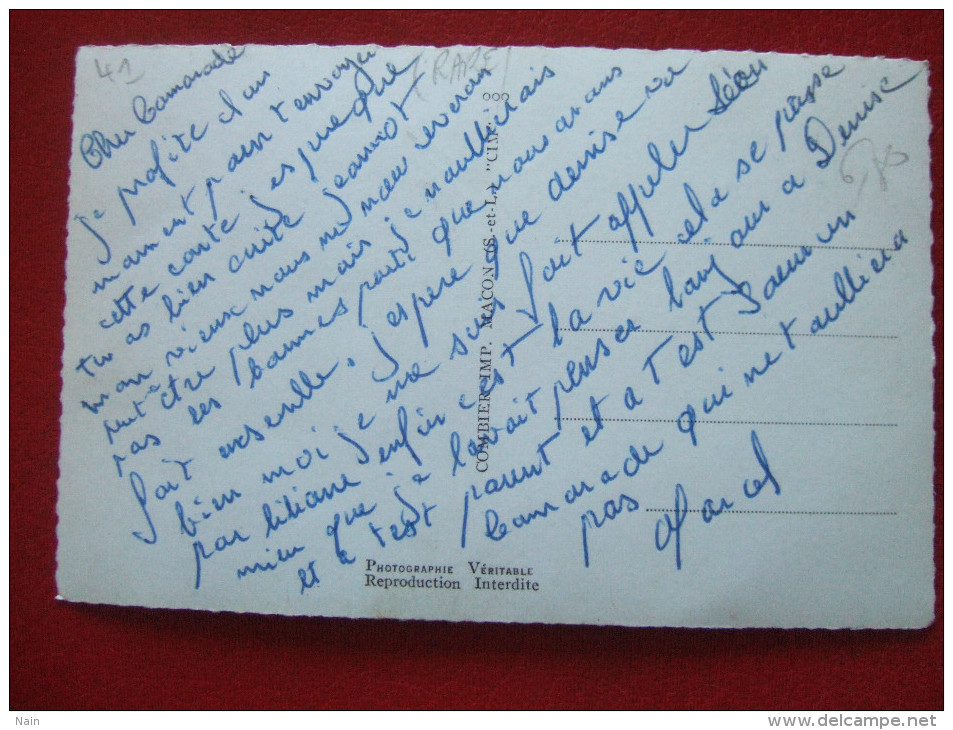 41
(RARE)
Cher Camarade
je profite d'un
moment pour t'envoyer
cette carte j'espere que
tu as bien Jeannot
mon vieux nous nous reveron
peut etre plus mais je n'oublierais
pas les bonnes parti que nous avons
fait ensenlle, j'espere que denise va
bien moi je me suis fait appeler Léon
par liliane enfin c'est la vie cela se passe
mieu que je lavait penser bonjour a Denise
et a test parent et a test Soeur un
Camarade qui ne t'oubliera
pas
Marcel
COMBIER IMP. MACON (S.-et-L.) "CIM"
PHOTOGRAPHIE VÉRITABLE
Reproduction Interdite
Nain
www.delcampe.net